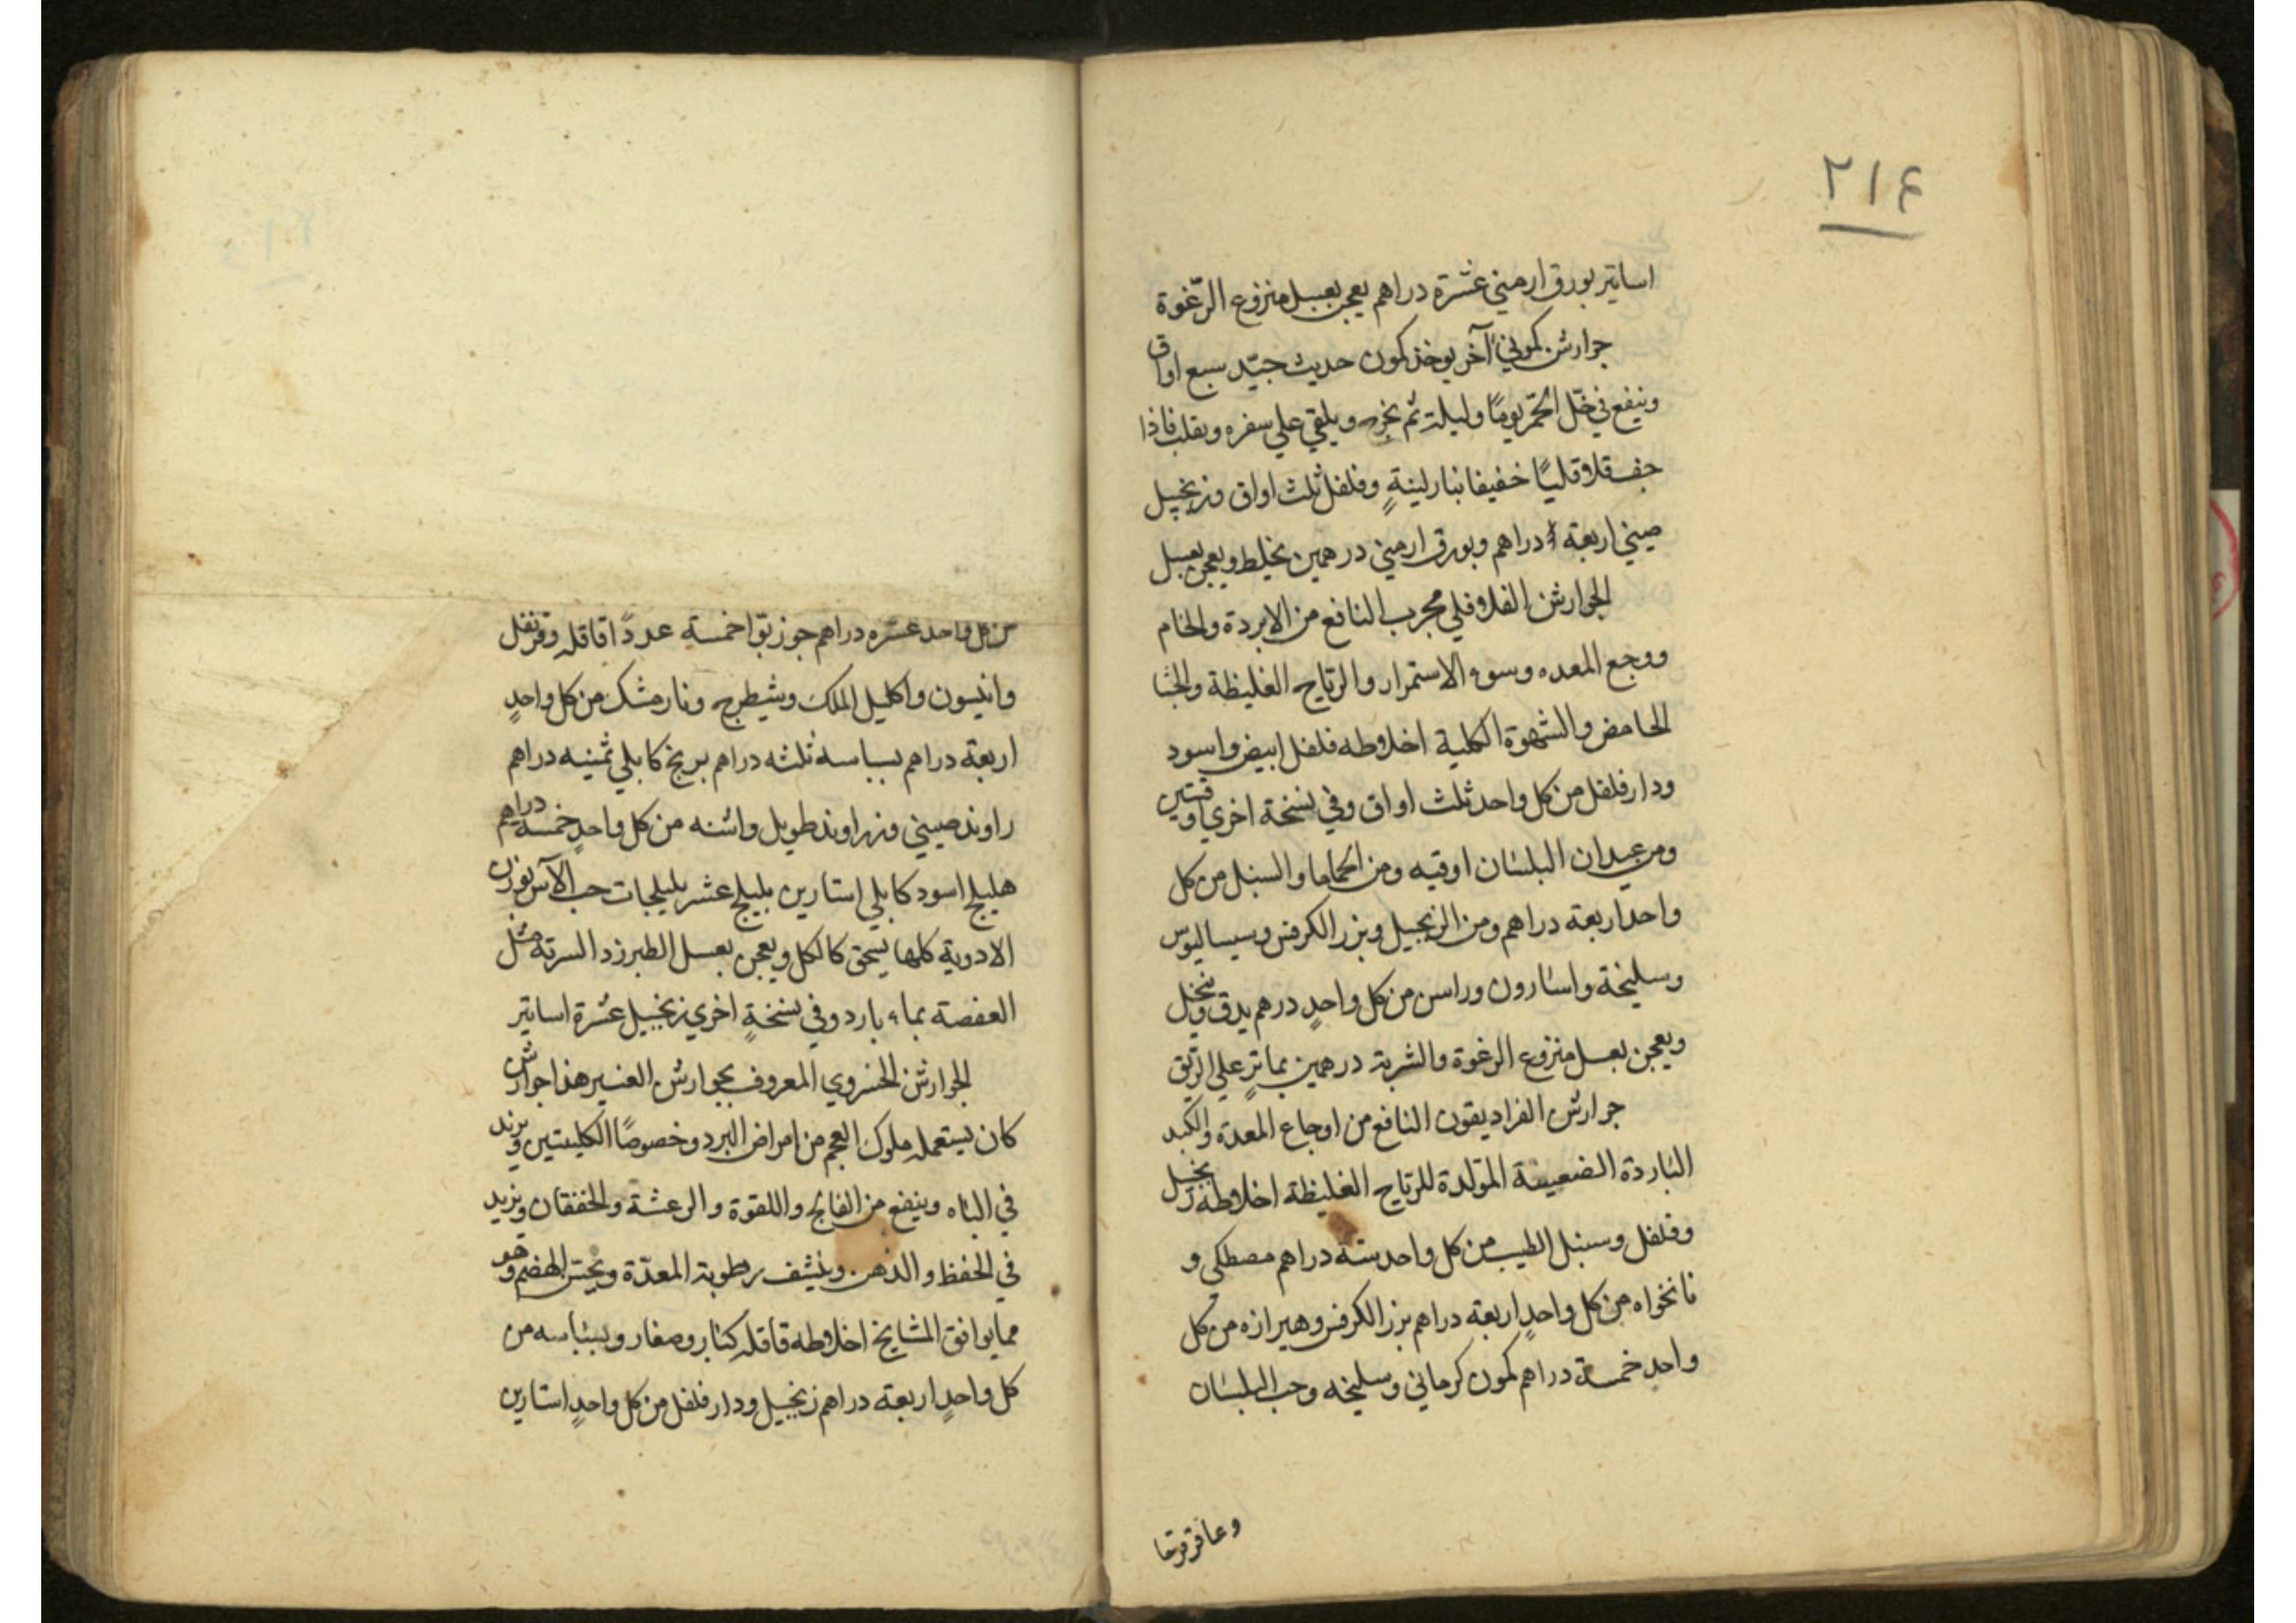 ٢١٤
اساتير بورق ارمني عشرة دراهم يعجن بعسل منزوع الرّغوة
جوارشن كموني آخر يوخذ كمون حديث جيّد سبع اواق
وينقع في خلّ الخمر يومًا وليلة ثم يخرج ويلقي علي سفره ويقلب فاذا
جف قلاو قليًا خفيفا بنار لينةٍ وفلفل ثلث اواق وزنجبيل
صيني اربعة دراهم وبورق ارميني درهمين يخلط ويعجن بعسل
الجوارشن الفلافلي مجرب النافع من الابردة والخام
ووجع المعده وسوء الاستمرار والرياح الغليظة والجشا
الحامض والشهوة الكلبية اخلاوطه فلفل ابيض واسود
ودارفلفل من كل واحد ثلث اواق وفي نسخة اخري وقيتين
ومن عيدان البلسان اوقيه ومن الحماما والسنبل من كل
واحد اربعة دراهم ومن الزنجبيل وبزر الكرفس وسيساليوس
وسليخة واسارون وراسن من كل واحدٍ درهم يدق وينخل
ويعجن بعسل منزوع الرغوة والشربة درهمين بماترٍ علي الريق
جوارشن الفراديقون النافع من اوجاع المعدة والكبد
الباردة الضعيفة المتولدة للرياح الغليظة اخلاوطه زنجبيل
وفلفل وسنبل الطيب من كل واحد ستة دراهم مصطكي و
نانخواه من كل واحدٍ اربعة دراهم بزر الكرفس وهيرازه من كل
واحدٍ خمسة دراهم كمون كرماني وسليخه وحب البلسان
وعاقرقرحا
من كل واحد عشره دراهم جوز بوّا خمسة عددًا قاقله وقرنفل
وانيسون واكليل الملك وشيطرج ونارمشك من كل واحدٍ
اربعة دراهم بسباسه ثلثه دراهم برنج كابلي ثمنيه دراهم
راوند صيني وزراوند طويل واشنه من كل واحدٍ خمسة دراهم
هليلج اسود كابلي استارين بليلج عشر بليلجات حب الآس بوزن
الادوية كلها يسحق كالكل ويعجن بعسل الطبرزد السرته مثل
العفصة بماء بارد وفي نسخةٍ اخري زنجبيل عشرة اساتير
الجوارشن الخسروي المعروف بجوارشن العنبر هذا جوارشن
كان يستعمله ملوك العجم من امراض البرد وخصوصًا الكليتين ويزيد
في الباه وينفع من الفالج واللقوة والرعشة والخفقان ويزيد
في الحفظ والذهن وينشف رطوبة المعدّة ويحسّن الهضم وهو
مما يوافق المشايخ اخلاوطه قاقله كبار وصغار وبسباسه من
كل واحدٍ اربعة دراهم زنجبيل ودارفلفل من كل واحدٍ استارين